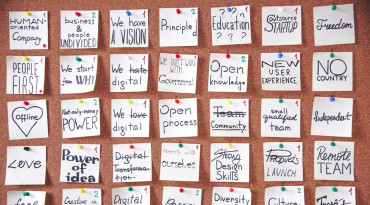 HUMAN-
oriented
Company
1
business
&
people
UNDIVIDED
2
We have
A VISION
1
Principle
2
? ?
Education
? ? ?
1
Outsource
STARTUP
Freedom
PEOPLE
FIRST.
1
We start
from WHY
We hate
digital
We don't work
with
Government
Open
knowledge
NEW
USER
EXPERIENCE
NO
COUNTRY
offline
Not-only-money
POWER
We love
digital
1
Open
process
Team
Community
small
qualified
team
Independent
Love
Power of
idea
Digital
Transformation
1
Honesty with
ourselves
1
Strong
Design
Skills
Products
LAUNCH
Remote
TEAM
2
Creative is
Digital
Diversity
Culture